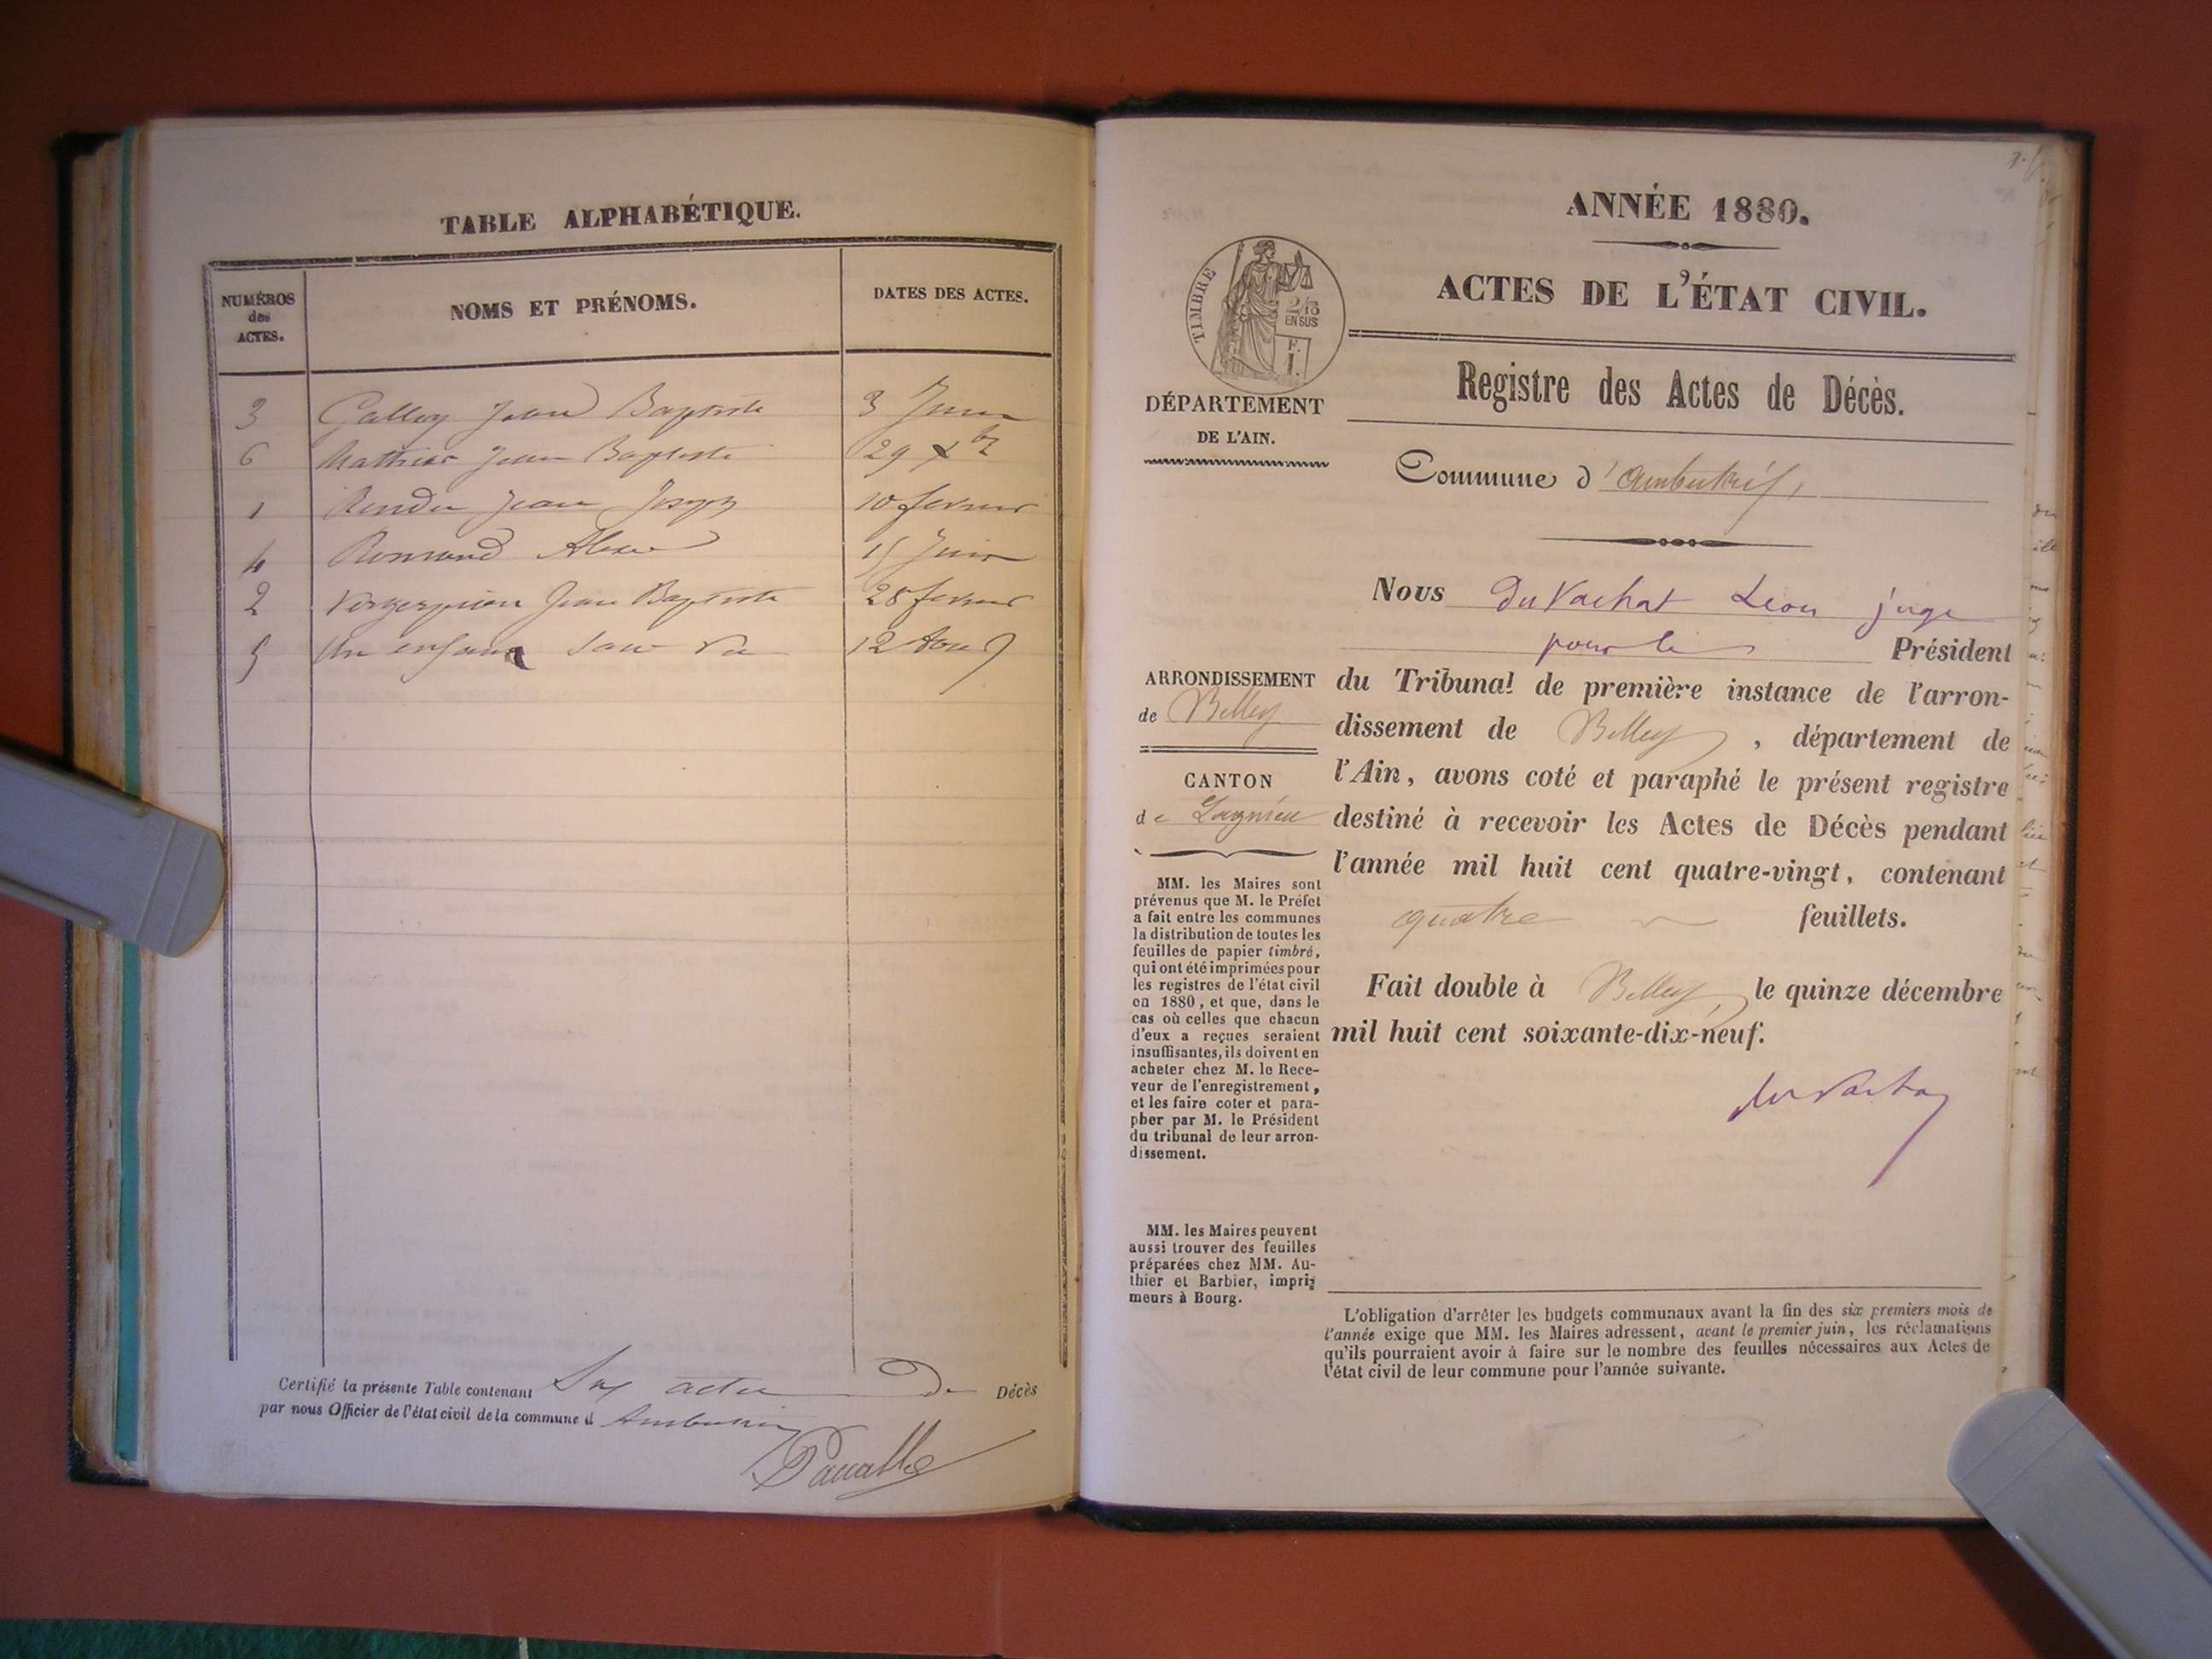 TABLE ALPHABÉTIQUE.
NUMÉROS
des
ACTES.
NOMS ET PRÉNOMS.
DATES DES ACTES.
3 Jean Baptiste 3 Juin
6 Jean Baptiste 29 Xbre
1 Jean Joseph 10 fevrier
4 15 Juin
2 Jean Baptiste 28 fevrier
5 Un enfant sans vie 12 Aout
Certifié la présente Table contenant Six actes De Décès
par nous Officier de l'état civil de la commune d Ambutrix
ANNÉE 1880.
ACTES DE L'ÉTAT CIVIL.
TIMBRE
2/10
EN SUS
F.
1.
Registre des Actes de Décès.
DÉPARTEMENT
DE L'AIN.
Commune d'Ambutrix,
Nous du Vachat Léon juge
pour le Président
du Tribunal de première instance de l'arron-
dissement de Belley, département de
l'Ain, avons coté et paraphé le présent registre
destiné à recevoir les Actes de Décès pendant
l'année mil huit cent quatre-vingt, contenant
quatre feuillets.
Fait double à Belley, le quinze décembre
mil huit cent soixante-dix-neuf.
du Vachat
ARRONDISSEMENT
de Belley
CANTON
de Lagnieu
MM. les Maires sont
prévenus que M. le Préfet
a fait entre les communes
la distribution de toutes les
feuilles de papier timbré,
qui ont été imprimées pour
les registres de l'état civil
en 1880, et que, dans le
cas où celles que chacun
d'eux a reçues seraient
insuffisantes, ils doivent en
acheter chez M. le Rece-
veur de l'enregistrement,
et les faire coter et para-
pher par M. le Président
du tribunal de leur arron-
dissement.
MM. les Maires peuvent
aussi trouver des feuilles
préparées chez MM. Au-
thier et Barbier, impri-
meurs à Bourg.
L'obligation d'arrêter les budgets communaux avant la fin des six premiers mois de
l'année exige que MM. les Maires adressent, avant le premier juin, les réclamations
qu'ils pourraient avoir à faire sur le nombre des feuilles nécessaires aux Actes de
l'état civil de leur commune pour l'année suivante.